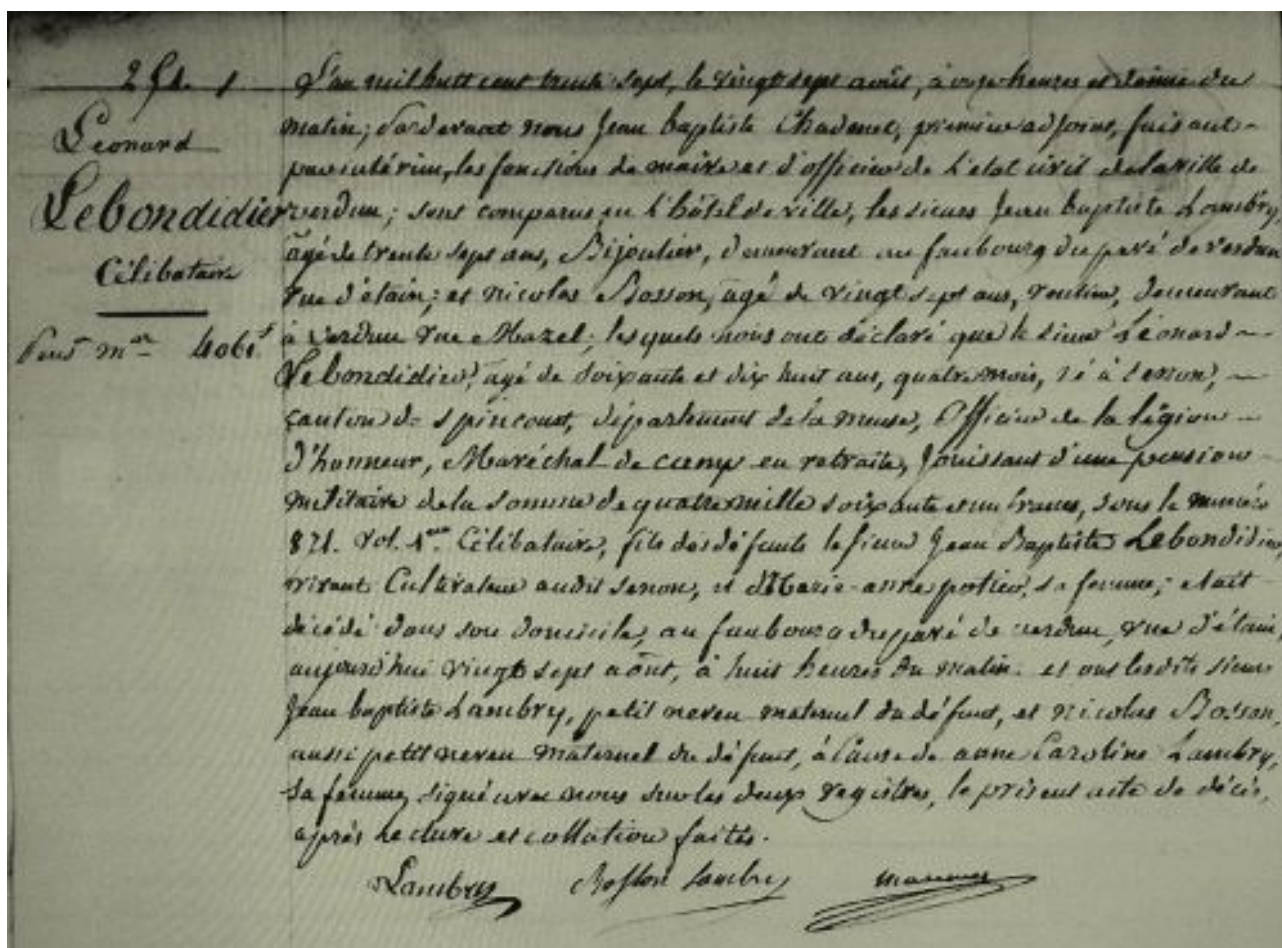 Léonard
Lebondidier
Célibataire
4061 f
L'an mil huit cent trente sept, le vingt sept août, à onze heures et demie du
matin; Pardevant nous Jean baptiste Chadenet, premier adjoint, faisant
par intérim, les fonctions de maire et d'officier de L'état civil de la ville de
verdun; sont comparus en L'hôtel de ville, les sieurs Jean baptiste Lambry,
âgé de trente sept ans, Bijoutier, demeurant au faubourg du pavé de verdun
rue d'étain; et Nicolas Bosson, âgé de vingt sept ans, rentier, demeurant
à Verdun rue Mazel; lesquels nous ont déclaré que le sieur Léonard
Lebondidier, âgé de soixante et dix huit ans, quatre mois, né à Senon,
canton de Spincourt, département de la meuse, Officier de la légion
d'honneur, Maréchal de camp en retraite, Jouissant d'une pension
militaire de la somme de quatre mille soixante et un francs, sous le numéro
821. Vol. 1er Célibataire, fils des défunts le sieur Jean Baptiste Lebondidier,
vivant Cultivateur audit Senon, et Marie-anne portier, sa femme; etait
décédé dans son domicile, au faubourg du pavé de verdun, rue d'étain,
aujourd'hui vingt sept août, à huit heures du matin. et ont lesdits sieurs
Jean baptiste Lambry, petit neveu maternel du défunt, et Nicolas Bosson,
aussi petit neveu maternel du défunt, à Cause de anne Caroline Lambry,
sa femme, signé avec nous sur les deux registres, le présent acte de décès,
après lecture et collation faites.
Lambry Bosson Lambry